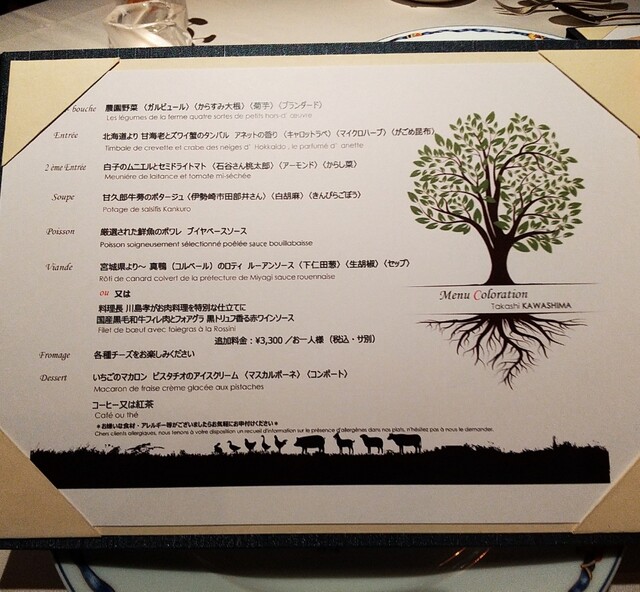 bouche 農園野菜 〈ガルビュール〉〈からすみ大根〉〈菊芋〉〈ブランダード〉
Les légumes de la ferme quatre sortes de petits hors d' œuvre
Entrée 北海道より 甘海老とズワイ蟹のタンバル アネットの香り 〈キャロットラペ〉〈マイクロハーブ〉〈がごめ昆布〉
Timbale de crevette et crabe des neiges d' Hokkaido , le parfumé d' anette
2 ème Entrée 白子のムニエルとセミドライトマト 〈石谷さん桃太郎〉〈アーモンド〉〈からし菜〉
Meunière de laitance et tomate mi-séchée
Soupe 甘久郎牛蒡のポタージュ〈伊勢崎市田部井さん〉〈白胡麻〉〈きんぴらごぼう〉
Potage de salsifis Kankuro
Poisson 厳選された鮮魚のポワレ ブイヤベースソース
Poisson soigneusement sélectionné poêlée sauce bouillabaisse
Viande 宮城県より〜 真鴨 〈コルベール〉のロティ ルーアンソース 〈下仁田葱〉〈生胡椒〉〈セップ〉
Rôti de canard colvert de la préfecture de Miyagi sauce rouennaise
ou 又は
料理長 川島孝がお肉料理を特別な仕立てに
国産黒毛和牛フィレ肉とフォアグラ 黒トリュフ香る赤ワインソース
Filet de bœuf avec foiegras à la Rossini
追加料金:¥3,300 /お一人様(税込・サ別)
Fromage 各種チーズをお楽しみください
Dessert いちごのマカロン ピスタチオのアイスクリーム 〈マスカルポーネ〉〈コンポート〉
Macaron de fraise crème glacée aux pistaches
コーヒー又は紅茶
Café ou thé
*お嫌いな食材・アレルギー等がございましたらお気軽にお申付けください*
Chers clients allergiques, nous tenons à votre disposition un recueil d'information sur le présence d'allergènes dans nos plats, n'hésitez pas à nous le demander.
Menu Coloration
Takashi KAWASHIMA